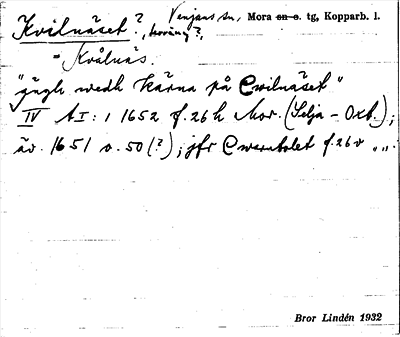 Kvilnäset?, Venjans sn, Mora sn o. tg, Kopparb. l.
= Kvålnäs.
"ängh wedh kärna på Cwilnäset"
IV AI: 1 1652 f. 26 h Mor. (Selja - Oxb.);
äv. 1651 v. 50 (?); jfr f. 26 v „ „.
Bror Lindén 1932